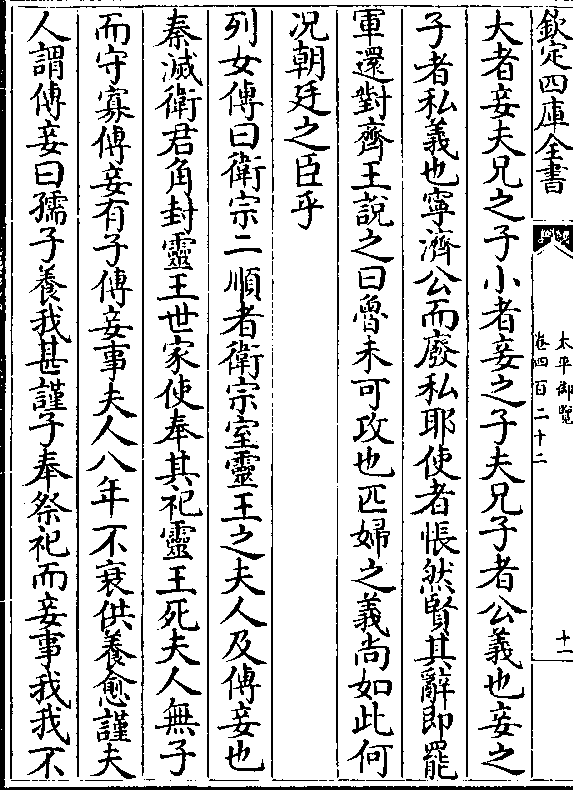 欽定四庫全書
太平御覽
卷四百二十二
十一
大者妾夫兄之子小者妾之子夫兄子者公義也妾之
子者私義也寧濟公而廢私耶使者悵然賢其辭即罷
軍還對齊王說之曰魯未可攻也匹婦之義尚如此何
况朝廷之臣乎
列女傳曰衛宗二順者衛宗室靈王之夫人及傅妾也
秦滅衛君角封靈王世家使奉其祀靈王死夫人無子
而守寡傅妾有子傅妾事夫人八年不衰供養愈謹夫
人謂傅妾曰孺子養我甚謹子奉祭祀而妾事我我不